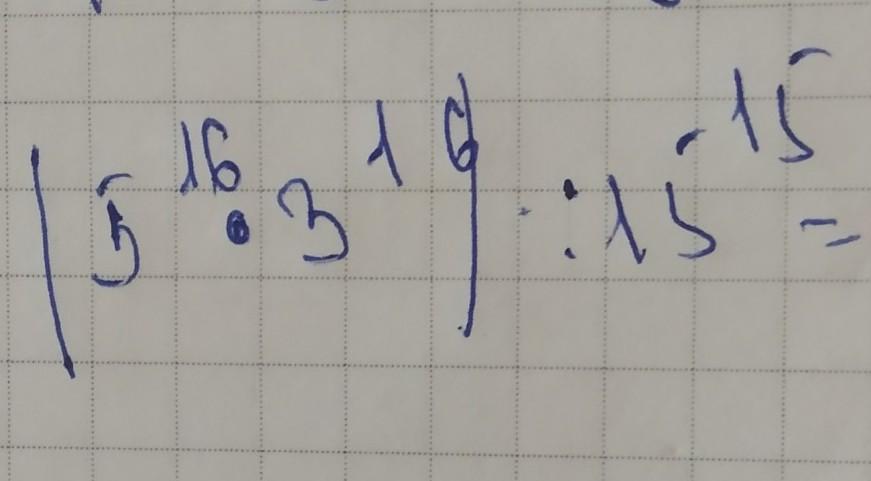 |5¹⁶•3¹⁶| : 15¹⁵ =